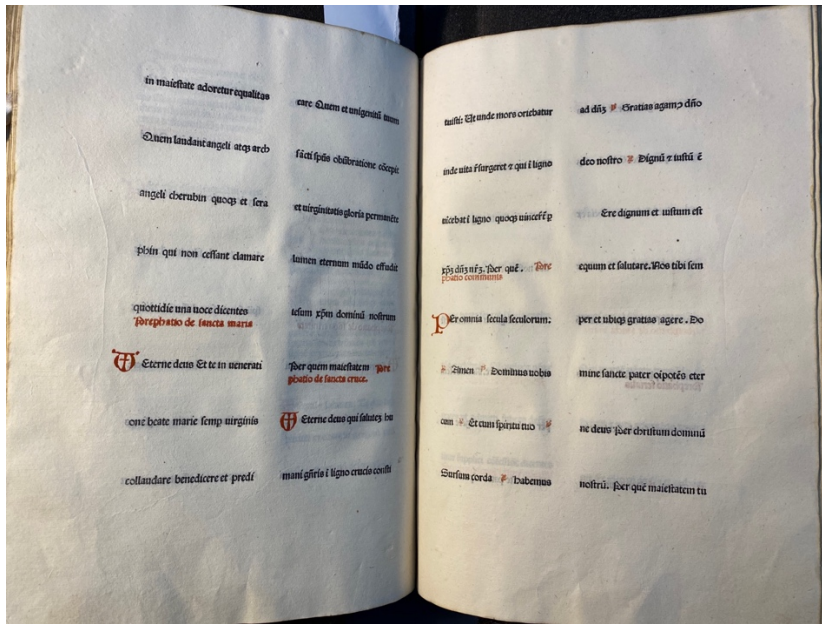 in maiestate adoretur equalitas
Quem laudant angeli atqꝫ arch
angeli cherubin quoqꝫ et sera
phin qui non cessant clamare
quottidie una uoce dicentes
Prephatio de sancta maria
Eterne deus Et te in uenerati
one beate marie semp uirginis
collaudare benedicere et predi
care Quem et unigenitū tuum
sācti spūs obūbratione cōcepit
et uirginitatis gloria permanēte
lumen eternum mūdo effudit
iesum xp̄m dominū nostrum
Per quem maiestatem Pre
phatio de sancta cruce.
Eterne deus qui saluteꝫ hu
mani gn̄ris ī ligno crucis consti
tuisti: Ut unde mors oriebatur
inde uita r̄surgeret ⁊ qui ī ligno
uicebat ī ligno quoqꝫ uincer̄t̄ p
xp̄ꝫ dn̄ꝫ nr̄ꝫ. Per quē. Pre
phatio communis
PEr omnia secula seculorum:
Amen Dominus uobis
cum Et cum spiritu tuo
Sursum corda habemus
ad dn̄ꝫ Gratias agamꝰ dn̄o
deo nostro Dignū ⁊ iustū ē
Ere dignum et iustum est
equum et salutare. Nos tibi sem
per et ubiqꝫ gratias agere. Do
mine sancte pater oīpotēs eter
ne deus Per christum dominū
nostrū. Per quē maiestatem tu